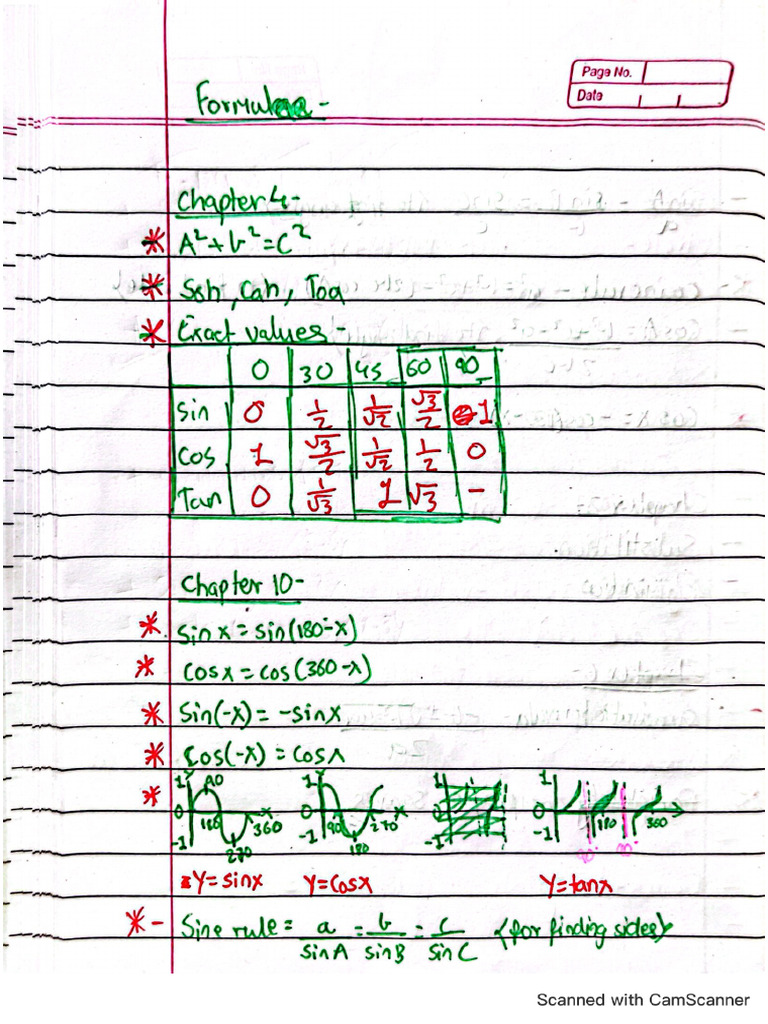 Page No.
Date
Formulae -
Chapter 4-
* A² + b² = C²
* Soh, Cah, Toa
* Exact values -
0 30 45 60 90
sin 0 1/2 1/√2 √3/2 1
Cos 1 √3/2 1/√2 1/2 0
Tan 0 1/√3 1 √3 -
Chapter 10-
* Sin x = sin(180-x)
* Cosx = cos(360-x)
* Sin(-x) = -sinx
* Cos(-x) = Cosx
* 1 0 -1 90 180 270 360 x
1 0 -1 90 180 270 x
1 0 -1
1 0 -1 180 360
Y=sinx Y=Cosx Y=tanx
* - Sine rule = a/sinA = b/sinB = c/sinC (for finding sides)
Scanned with CamScanner